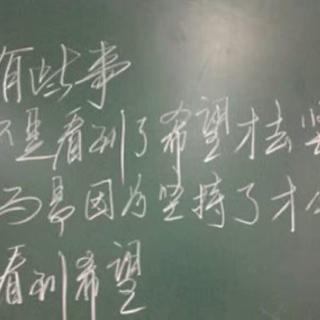 有些事
不是看到了希望才去坚
而是因为坚持了才会
看到希望